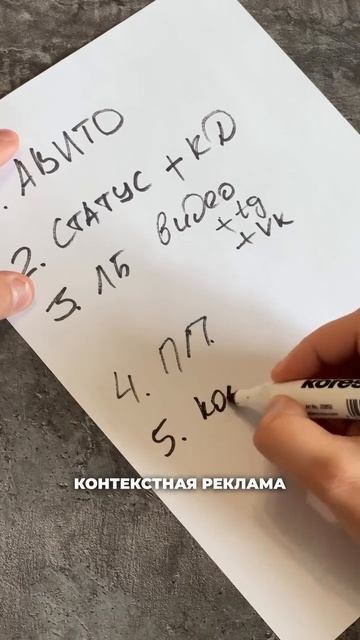 . АВИТО
2. СТАТУС + КД
3. ЛБ видео
+ tg
+ VK
4. ПП.
5. КОН
kores
КОНТЕКСТНАЯ РЕКЛАМА